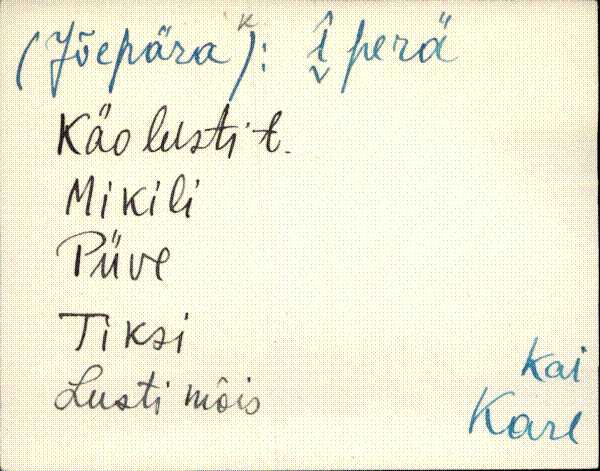 (Jõepära k): î̬ perä
Käolusti t.
Mikili
Püve
Tiksi
Lusti mõis
Kai
Karl